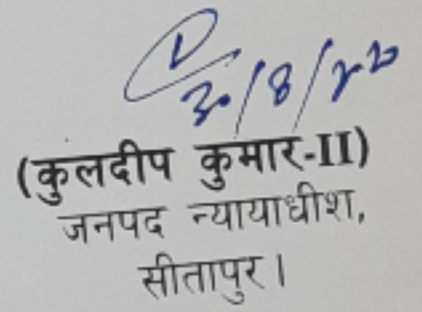 30/8/22
(कुलदीप कुमार-II)
जनपद न्यायाधीश,
सीतापुर।